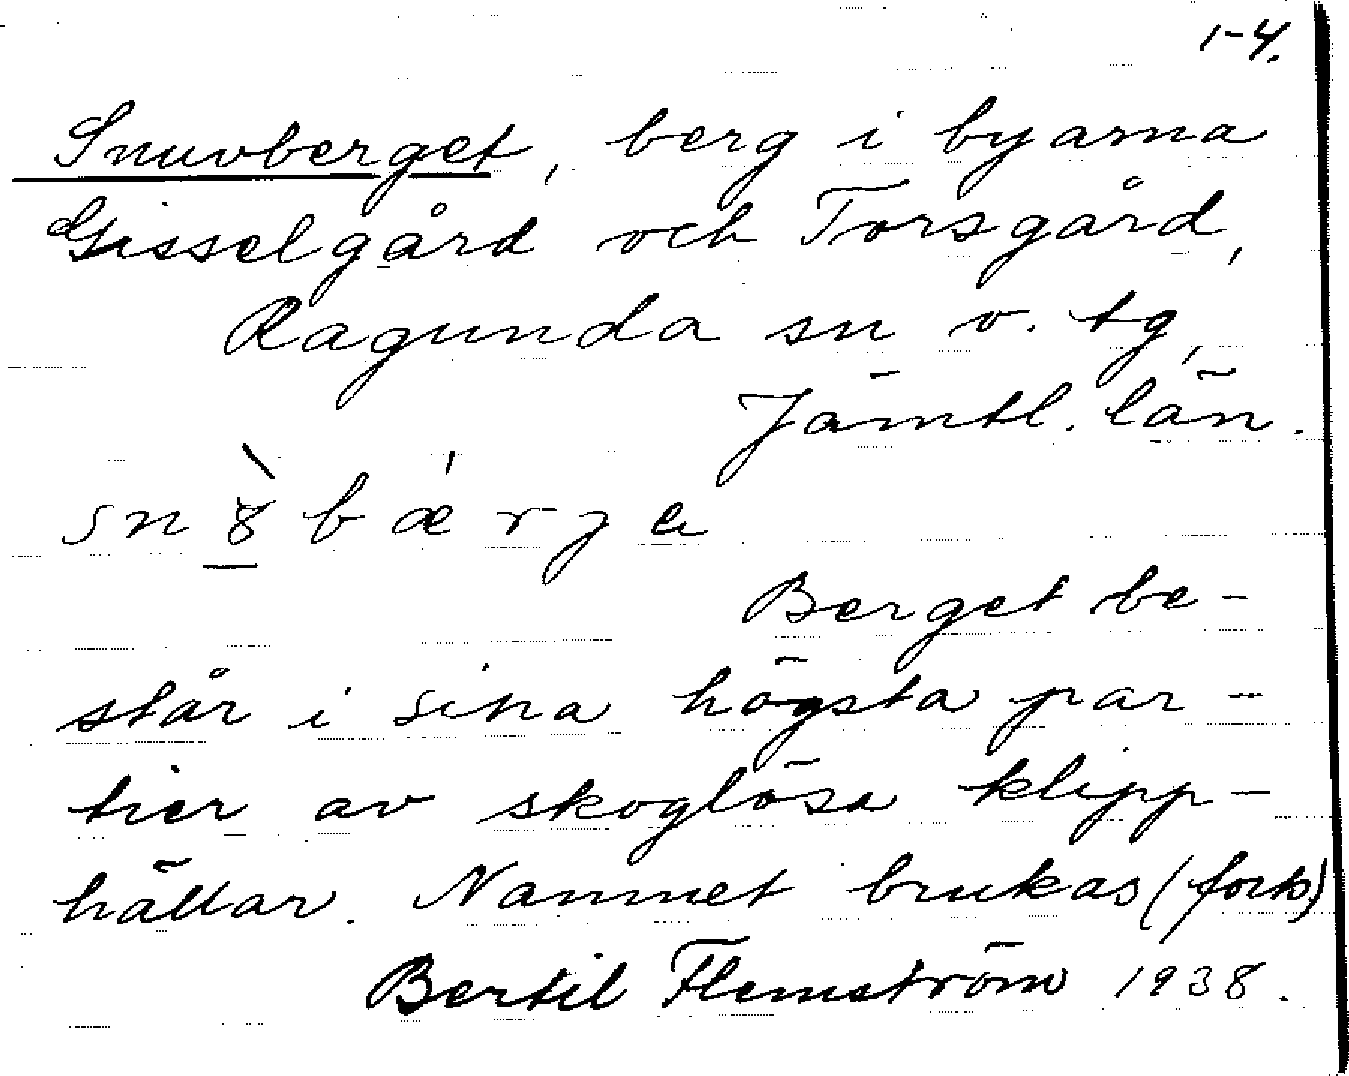 1-4.
Snuvberget, berg i byarna
Gisselgård och Torsgård,
Ragunda sn o. tg,
Jämtl. län.
snȣ̀bǽrjɐ
Berget be-
står i sina högsta par-
tier av skoglösa klipp-
hällar. Namnet brukas (forts)
Bertil Flemström 1938.